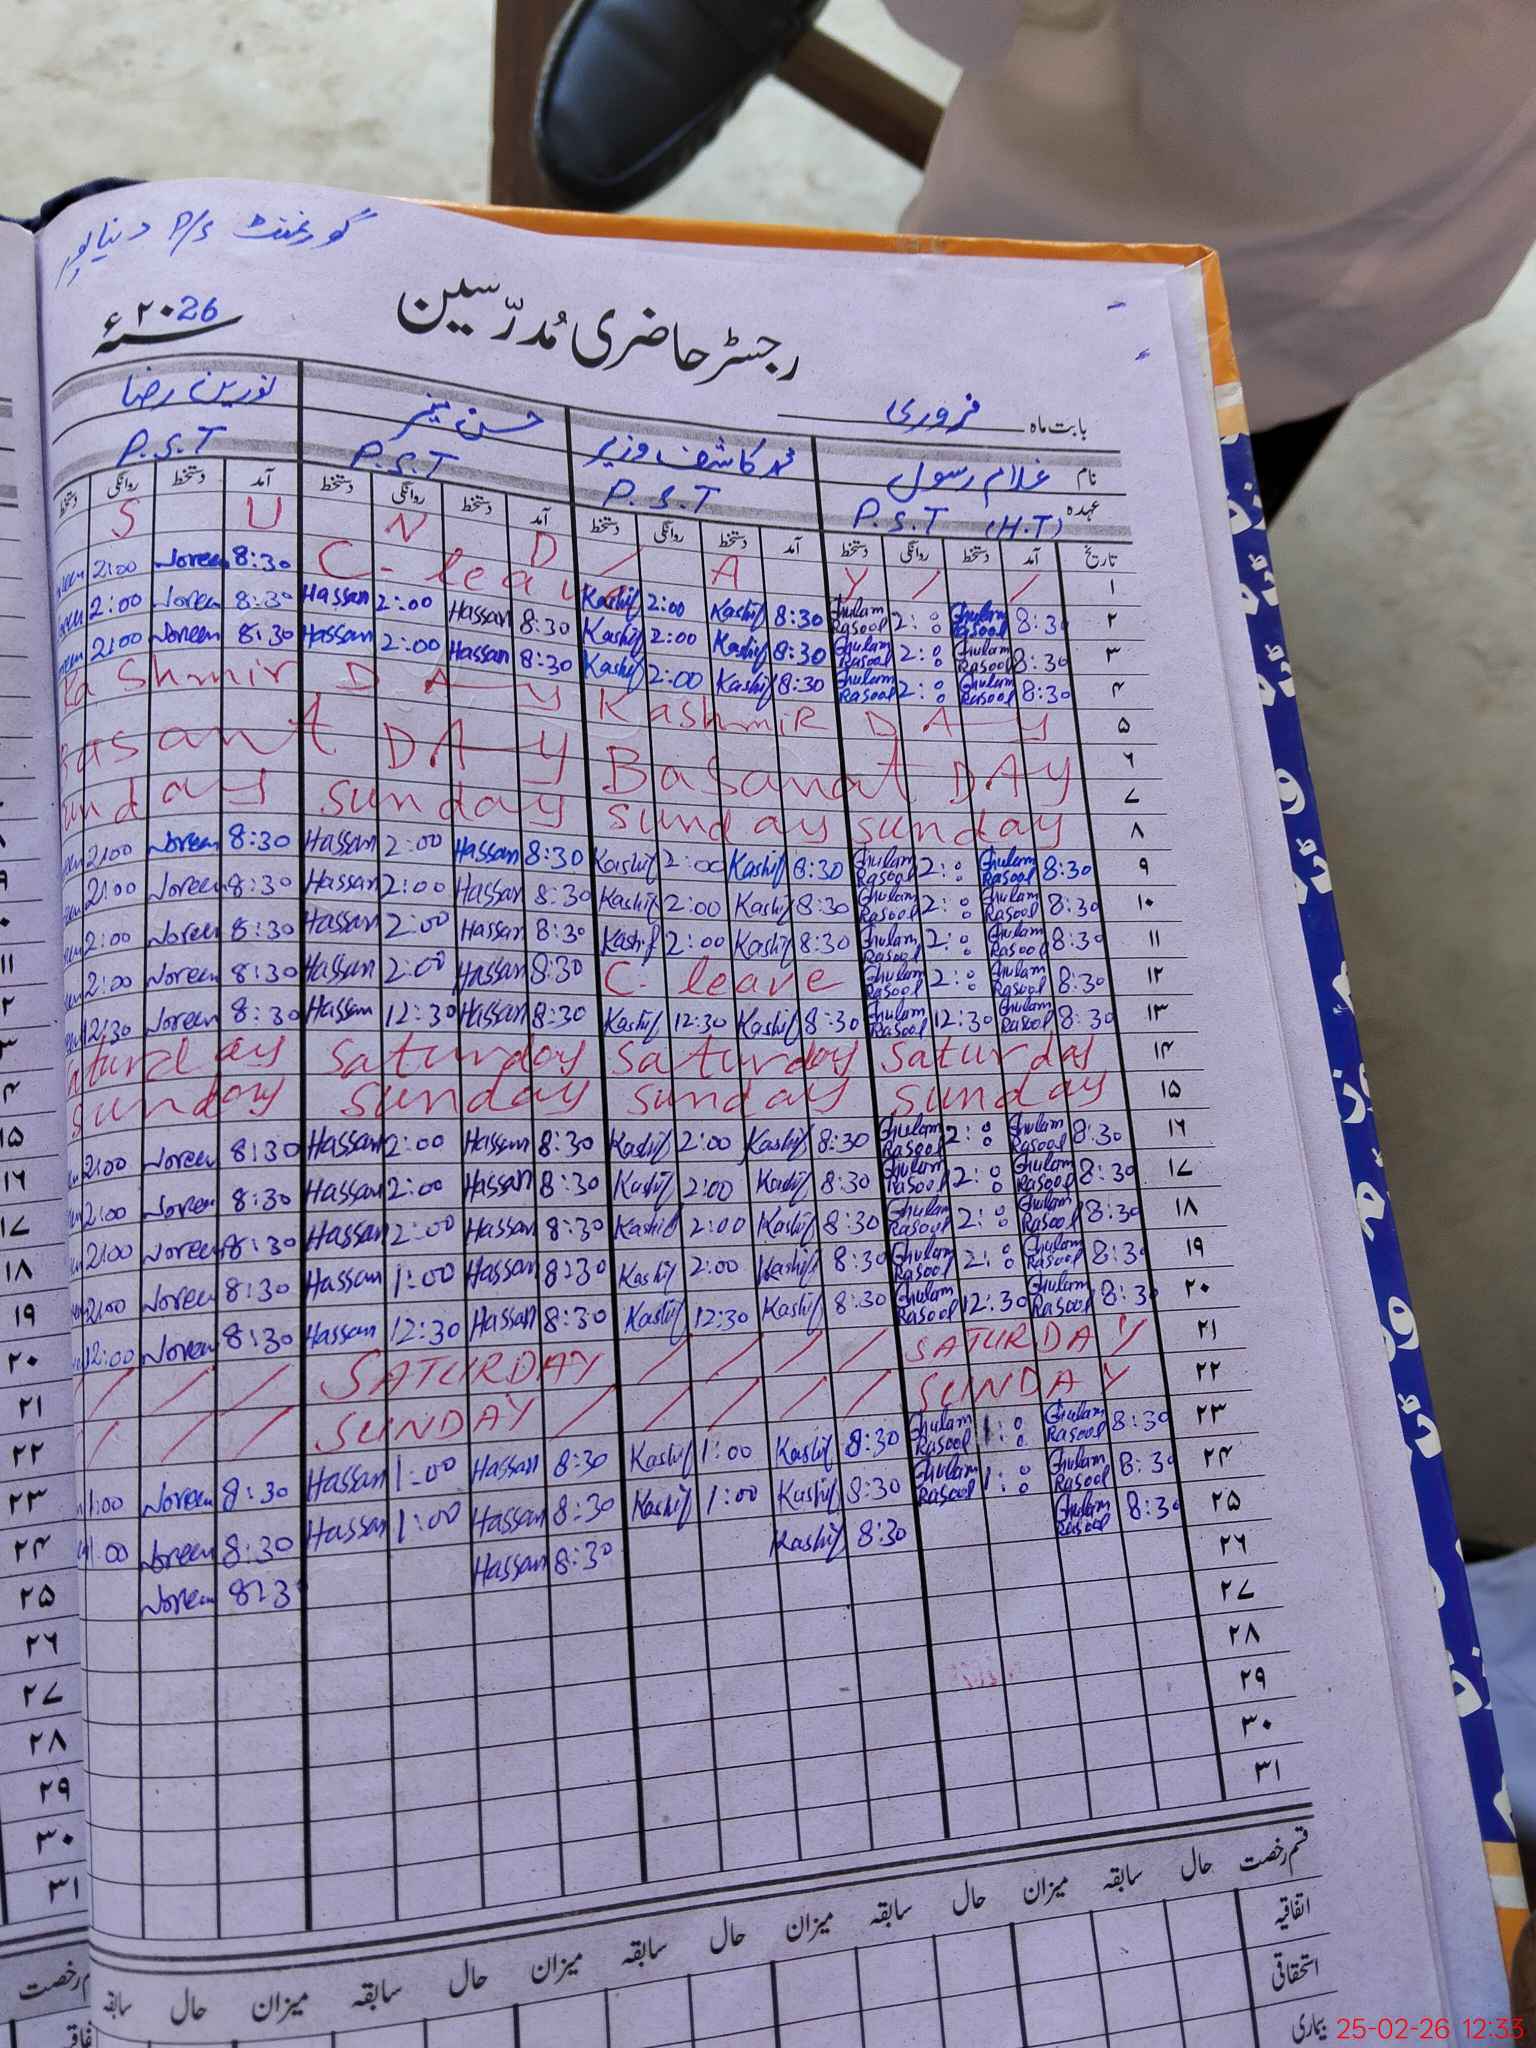 گورنمنٹ P/S دنیاپور
رجسٹر حاضری مُدرّسین ۲۰26ء
بابت ماہ فروری
نام غلام رسول محمد کاشف وزیر حسن منیر نورین رضا
عہدہ P.S.T (H.T) P.S.T P.S.T P.S.T
تاریخ آمد دستخط روانگی دستخط آمد دستخط روانگی دستخط آمد دستخط روانگی دستخط آمد دستخط روانگی دستخط
S U N D / A Y / / ۱
2:00 Noreen 8:30 C-leave Kashif 2:00 Kashif 8:30 Ghulam Rasool 2:00 Ghulam Rasool 8:30 ۲
2:00 Noreen 8:30 Hassan 2:00 Hassan 8:30 Kashif 2:00 Kashif 8:30 Ghulam Rasool 2:00 Ghulam Rasool 8:30 ۳
2:00 Noreen 8:30 Hassan 2:00 Hassan 8:30 Kashif 2:00 Kashif 8:30 Ghulam Rasool 2:00 Ghulam Rasool 8:30 ۴
Kashmir DAY KashmiR DAY ۵
Basant DAY Basanat DAY ۶
۷
Sunday Sunday Sunday Sunday ۸
2:00 Noreen 8:30 Hassan 2:00 Hassan 8:30 Kashif 2:00 Kashif 8:30 Ghulam Rasool 2:00 Ghulam Rasool 8:30 ۹
2:00 Noreen 8:30 Hassan 2:00 Hassan 8:30 Kashif 2:00 Kashif 8:30 Ghulam Rasool 2:00 Ghulam Rasool 8:30 ۱۰
2:00 Noreen 8:30 Hassan 2:00 Hassan 8:30 Kashif 2:00 Kashif 8:30 Ghulam Rasool 2:00 Ghulam Rasool 8:30 ۱۱
2:00 Noreen 8:30 Hassan 2:00 Hassan 8:30 C-leave Ghulam Rasool 2:00 Ghulam Rasool 8:30 ۱۲
12:30 Noreen 8:30 Hassan 12:30 Hassan 8:30 Kashif 12:30 Kashif 8:30 Ghulam Rasool 12:30 Ghulam Rasool 8:30 ۱۳
Saturday Saturday Saturday Saturday ۱۴
Sunday Sunday Sunday Sunday ۱۵
2:00 Noreen 8:30 Hassan 2:00 Hassan 8:30 Kashif 2:00 Kashif 8:30 Ghulam Rasool 2:00 Ghulam Rasool 8:30 ۱۶
2:00 Noreen 8:30 Hassan 2:00 Hassan 8:30 Kashif 2:00 Kashif 8:30 Ghulam Rasool 2:00 Ghulam Rasool 8:30 ۱۷
2:00 Noreen 8:30 Hassan 2:00 Hassan 8:30 Kashif 2:00 Kashif 8:30 Ghulam Rasool 2:00 Ghulam Rasool 8:30 ۱۸
2:00 Noreen 8:30 Hassan 1:00 Hassan 8:30 Kashif 2:00 Kashif 8:30 Ghulam Rasool 2:00 Ghulam Rasool 8:30 ۱۹
12:00 Noreen 8:30 Hassan 12:30 Hassan 8:30 Kashif 12:30 Kashif 8:30 Ghulam Rasool 12:30 Ghulam Rasool 8:30 ۲۰
/ / / SATURDAY / / / / SATURDAY ۲۱
/ / / SUNDAY / / / / / SUNDAY ۲۲
1:00 Noreen 8:30 Hassan 1:00 Hassan 8:30 Kashif 1:00 Kashif 8:30 Ghulam Rasool 1:00 Ghulam Rasool 8:30 ۲۳
1:00 Noreen 8:30 Hassan 1:00 Hassan 8:30 Kashif 1:00 Kashif 8:30 Ghulam Rasool 1:00 Ghulam Rasool 8:30 ۲۴
Noreen 8:3 Hassan 8:30 Kashif 8:30 Ghulam Rasool 8:30 ۲۵
۲۶
۲۷
۲۸
۲۹
۳۰
۳۱
قسم رخصت حال سابقہ میزان حال سابقہ میزان حال سابقہ میزان حال سابقہ
اتفاقیہ
استحقاقی
بیماری
25-02-26 12:33